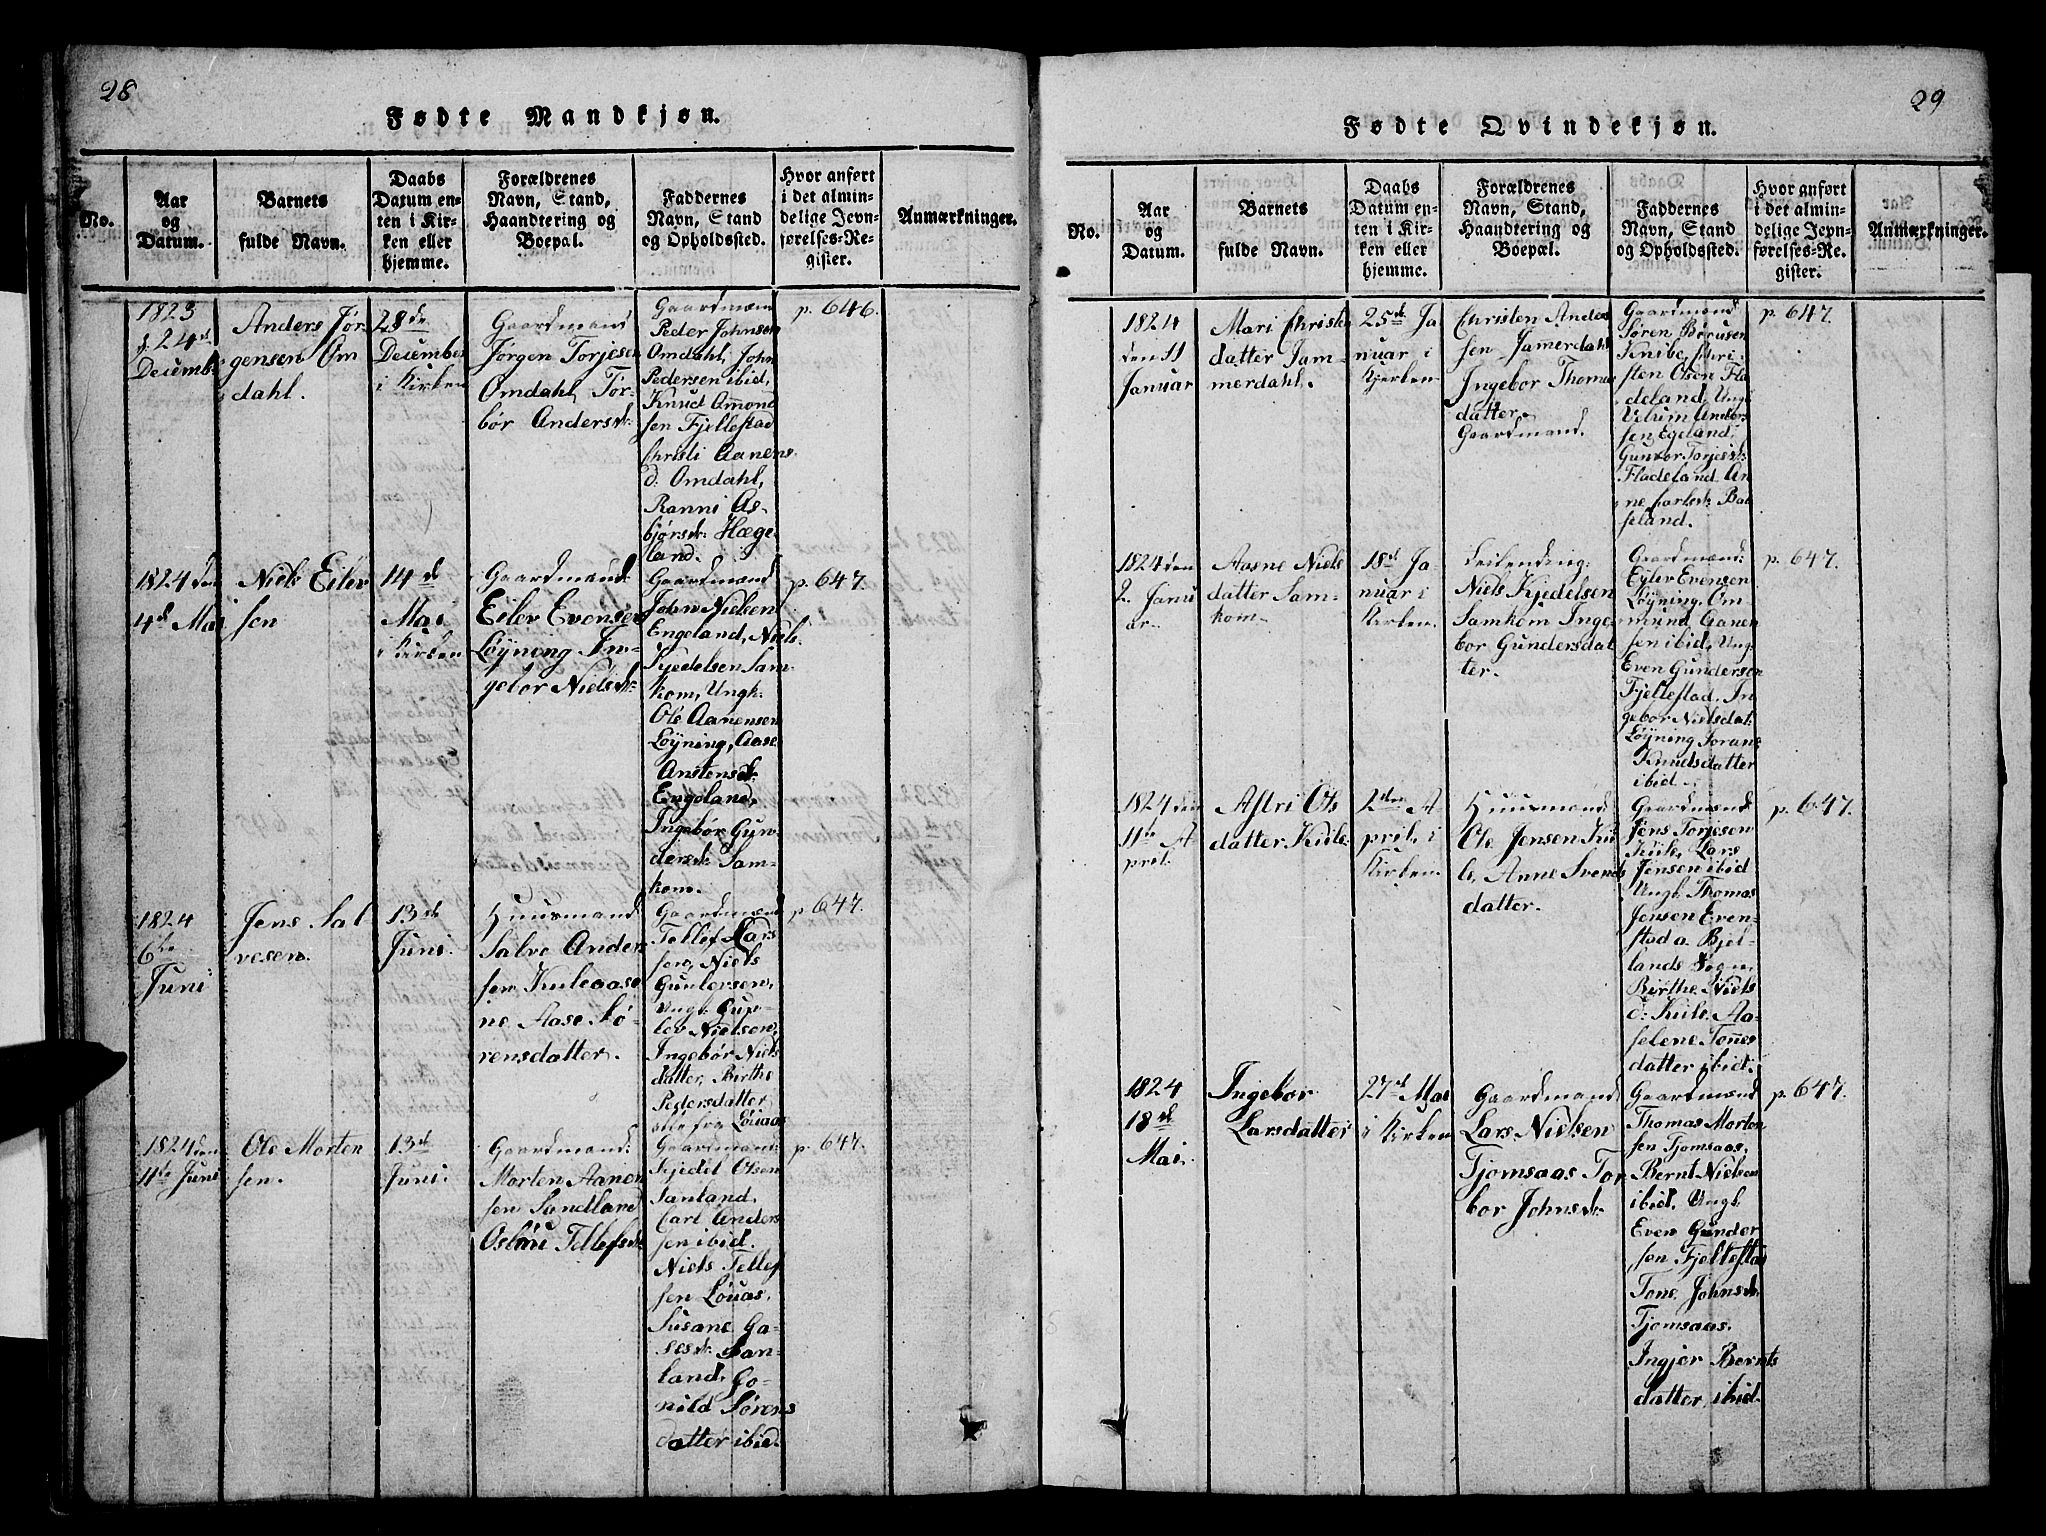 28
Fødte Mandkjøn.
No.
Aar
og
Datum.
Barnets
fulde Navn.
Daabs
Datum en-
ten i Kir-
ken eller
hjemme.
Forældrenes
Navn, Stand,
Haandtering og
Boepæl.
Faddernes
Navn, Stand
og Opholdssted.
Hvor anført
i det almin-
delige Jevn-
førelses-Re-
gister.
Anmærkninger.
1823
24de
Decemb:
Anders Jør
gensen Om
dahl.
28de
December
i Kirken
Gaardmand
Jørgen Torjesen
Omdahl, Tor-
bør Andersdr:
Gaardmænd
Peder Johnsen
Omdahl, John
Pedersen ibid,
Knud Omond
sen Fjellestad
Christi Aanens
d: Omdahl,
Ranni As-
bjørsdr: Hæge
land.
p. 646.
1824 den
4de Mai
Niels Eilev
sen
14de
Mai
i Kirken
Gaardmand:
Eilev Evensen
Løyning In-
gebor Nielsdr:
Gaardmænd
John Nielsen
Engeland, Niels
Kjedelsen Sam-
kom, Ungk:
Ole Aanensen
Løyning, Aase
Anstensdr:
Engeland,
Ingebør Gun-
dersdr: Sam-
kom.
p. 647.
1824
6te
Juni
Jens Sal
vesen.
13de
Juni.
Huusmand
Salve Anders
sen Kuleaase
ne Aase Sø-
rensdatter.
Gaardmænd
Tellef Lars
sen, Niels
Gundersen,
Ungk: Gun-
lev Nielsen,
Ingebør Niels
datter, Birthe
Pedersdatter
alle fra Løuaas
p. 647.
1824 den
11te Juni
Ole Morten
sen.
13de
Juni.
Gaardmand:
Morten Aanen
sen Sandland
Tellefsdr
Gaardmænd:
Kjedel Olsen
Sanland,
Carl Anders
sen ibid.
Niels Tellef
sen Løuas,
Susane Ga-
sesdr: San-
land, Go-
nild Sørens
datter ibid.
p. 647.
29
Fødte Qvindekjøn.
No.
Aar
og
Datum.
Barnets
fulde Navn.
Daabs
Datum en-
ten i Kir-
ken eller
hjemme.
Forældrenes
Navn, Stand,
Haandtering og
Boepæl.
Faddernes
Navn, Stand
og Opholdssted.
Hvor anført
i det almin-
delige Jevn-
førelses-Re-
gister.
Anmærkninger.
1824
den 11
Januar
Mari Christens
datter Jam-
merdahl.
25de Ja
nuar i
Kjerken
Christen Anders
sen Jamerdahl
Ingebor Thomas
datter.
Gaardmand.
Gaardmænd:
Søren Børusen
Knibe, Chri-
sten Olsen Fla
deland, Ungk
Vilum Anders
sen Egeland,
Gunvor Torjesdr:
Fladeland, An
ne Carlsdr: Bal
seland.
p. 647.
1824 den
2. Janu
ar.
Aasne Niels
datter Sam-
kom.
18de Ja-
nuar i
Kirken.
Leilending:
Niels Kjedelsen
Samkom Inge-
bor Gundersdat
ter.
Gaardmænd:
Eylev Evensen
Løyning, Om
mund Aanen
sen ibid, Ung
Even Gundersen
Fjellestad, In
gebor Nielsdat:
Løyning Joran
Knudsdatter
ibid.
p. 647.
1824 den
11te A
pril.
Astri Ols
datter Kuile
2den A
pril. i
Kirken.
Huusmand:
Ole Jensen Kui
le, Anne Svends
datter.
Gaardmænd:
Jens Torjesen
Kuile, Lars
Jensen ibid
Ungk: Thomas
Jensen Even-
stad a Bjel-
lands Sogn,
Birthe Niels
d: Kuile, Aa-
selene Tønnes
datter ibid.
p. 647.
1824
18de
Mai.
Ingebor
Larsdatter
27de Mai
i Kirken
Gaardmand:
Lars Nielsen
Tjomsaas Tor
bor Johnsdr:
Gaardmænd
Thomas Morten
sen Tjomsaas,
Bernt Nielsen
ibid, Ungk:
Even Gunder
sen Fjellestad
Tone Johnsdr:
Tjomsaas.
Ingjer Bernts
datter, ibid.
p. 647.